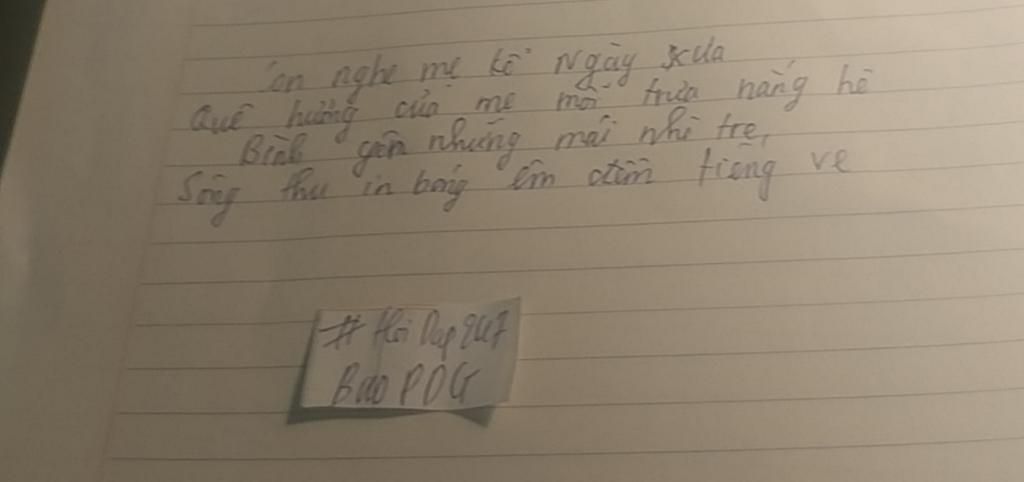 nghe mẹ kể Ngày xưa
Quê hương của mẹ mỗi trưa nắng hè
Bình yên những mái nhà tre,
Sông thu in bóng êm đềm tiếng ve
# Hoi Dap 247
Bao PDG